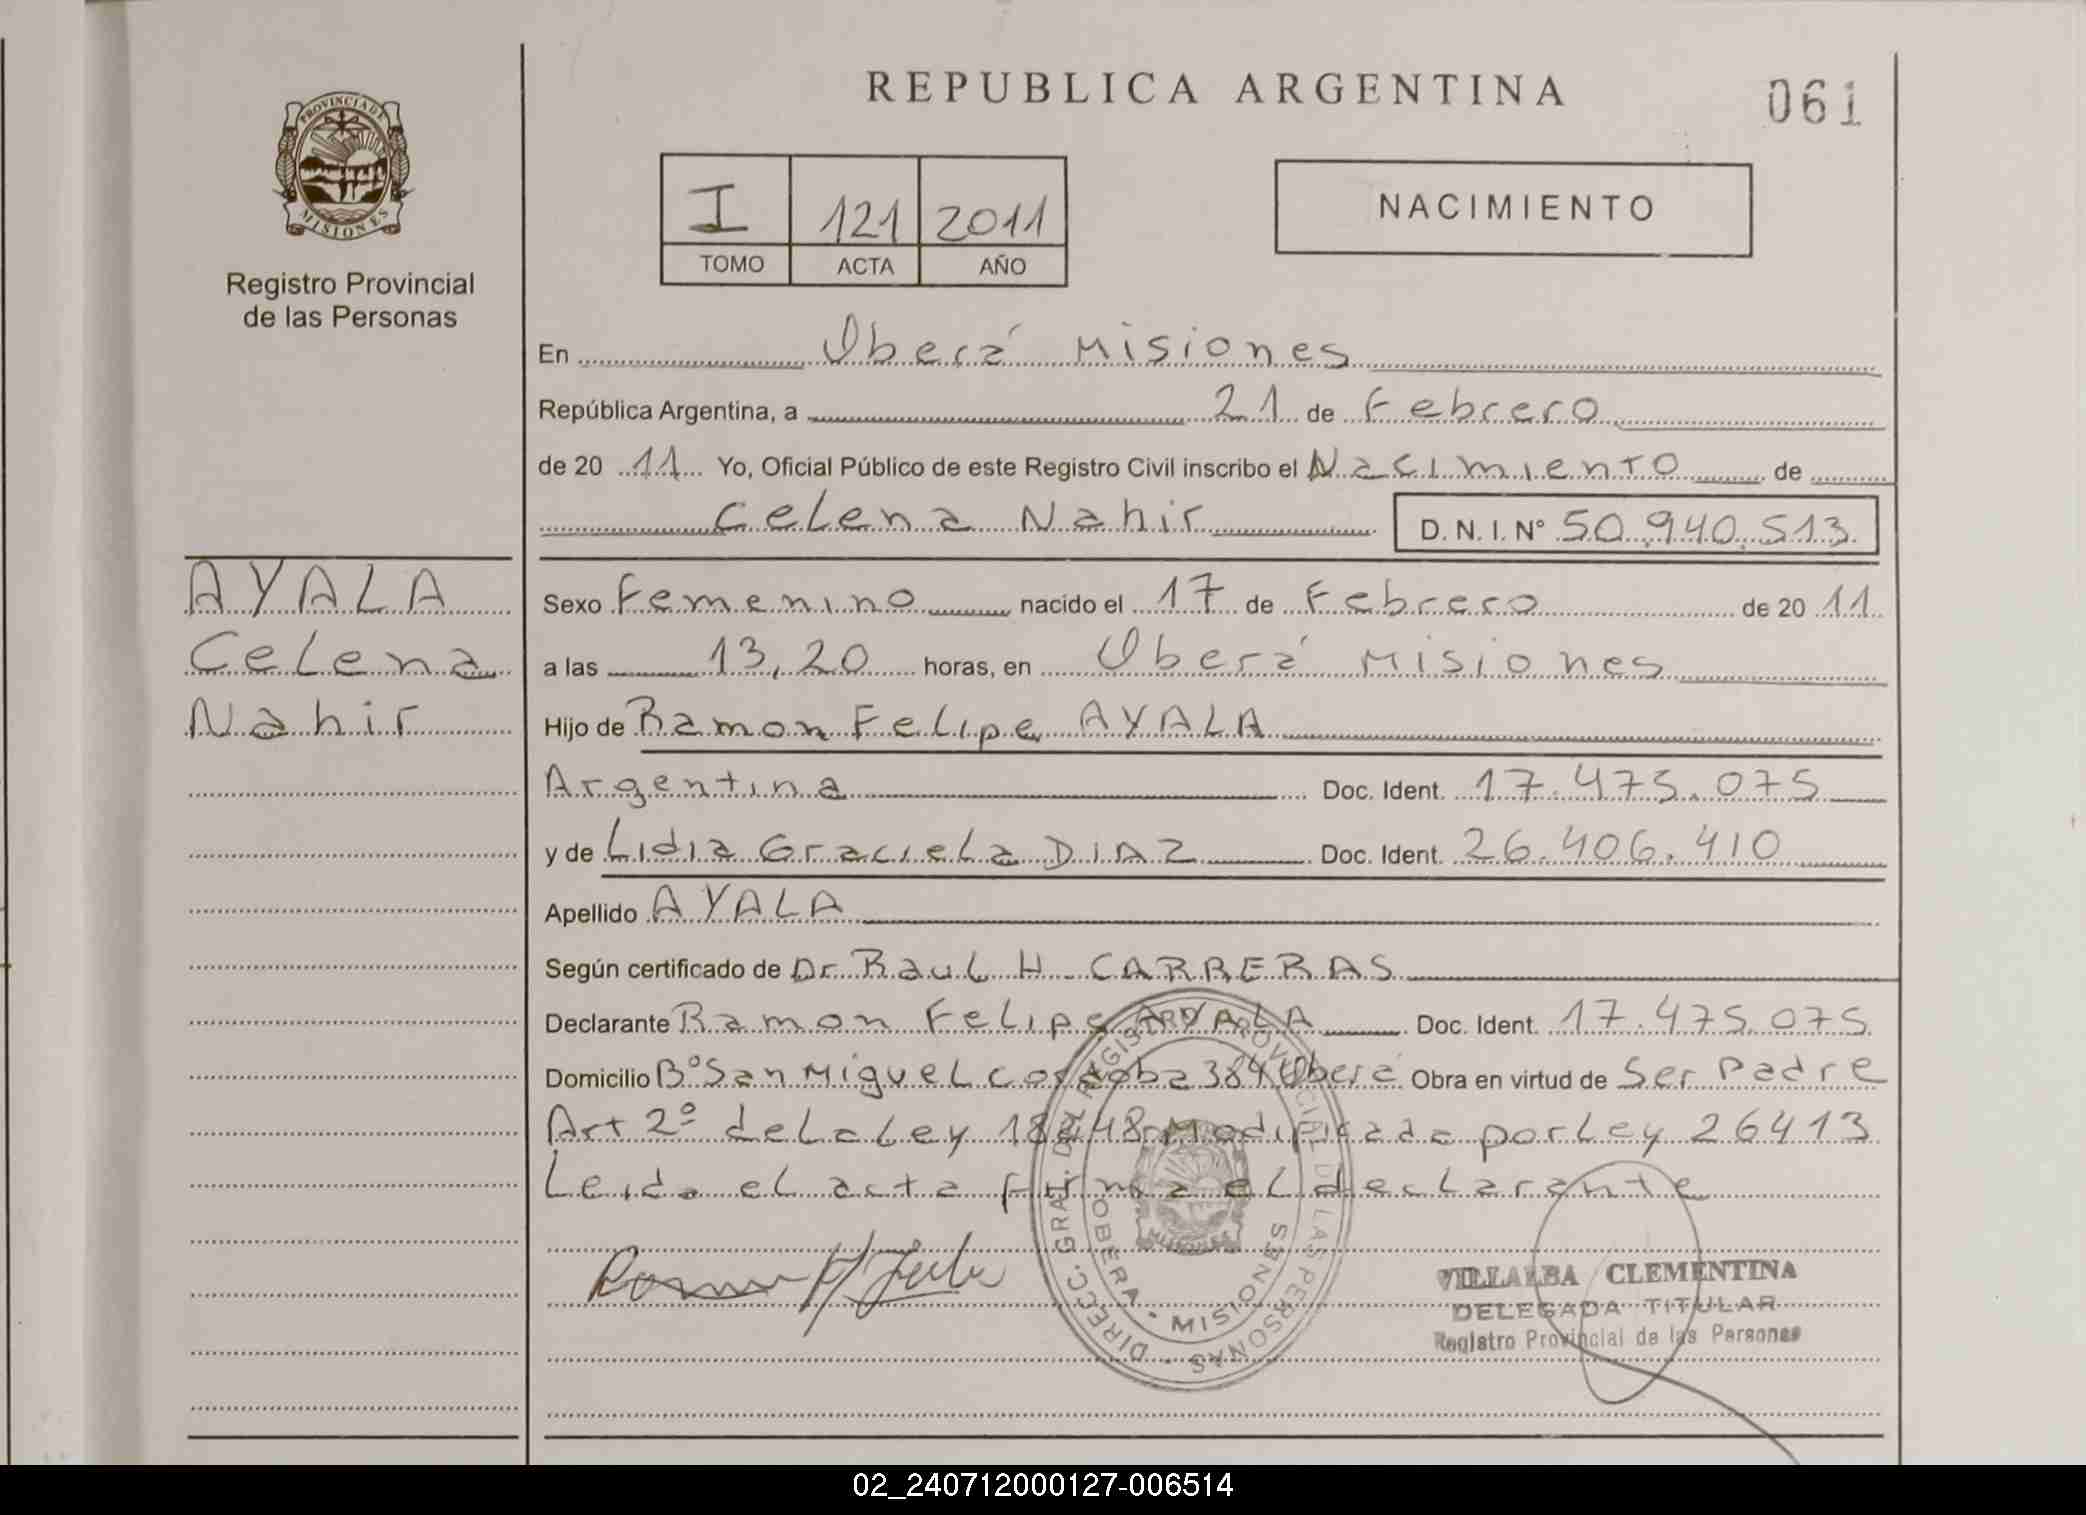 REPUBLICA ARGENTINA
061
PROVINCIA DE
MISIONES
Registro Provincial
de las Personas
I 121 2011
TOMO ACTA AÑO
NACIMIENTO
En Oberá Misiones
República Argentina, a 21 de Febrero
de 20 11 Yo, Oficial Público de este Registro Civil inscribo el Nacimiento de
Celena Nahir D. N. I. N° 50.940.513
AYALA
Celena
Nahir
Sexo Femenino nacido el 17 de Febrero de 20 11
a las 13,20 horas, en Oberá Misiones
Hijo de Ramon Felipe AYALA
Argentina Doc. Ident. 17.475.075
y de Lidia Graciela DIAZ Doc. Ident. 26.406.410
Apellido AYALA
Según certificado de Dr Raul H CARRERAS
Declarante Ramon Felipe AYALA Doc. Ident. 17.475.075
Domicilio B° San Miguel Cordoba 384 Oberá Obra en virtud de Ser Padre
Art 2º de La Ley 18248 Modificada por Ley 26413
Leida el acta firma el declarante
DIRECC. GRAL. DEL REGISTRO PROVINCIAL DE LAS PERSONAS
OBERA - MISIONES
MISIONES
VILLALBA CLEMENTINA
DELEGADA TITULAR
Registro Provincial de las Personas
02_240712000127-006514